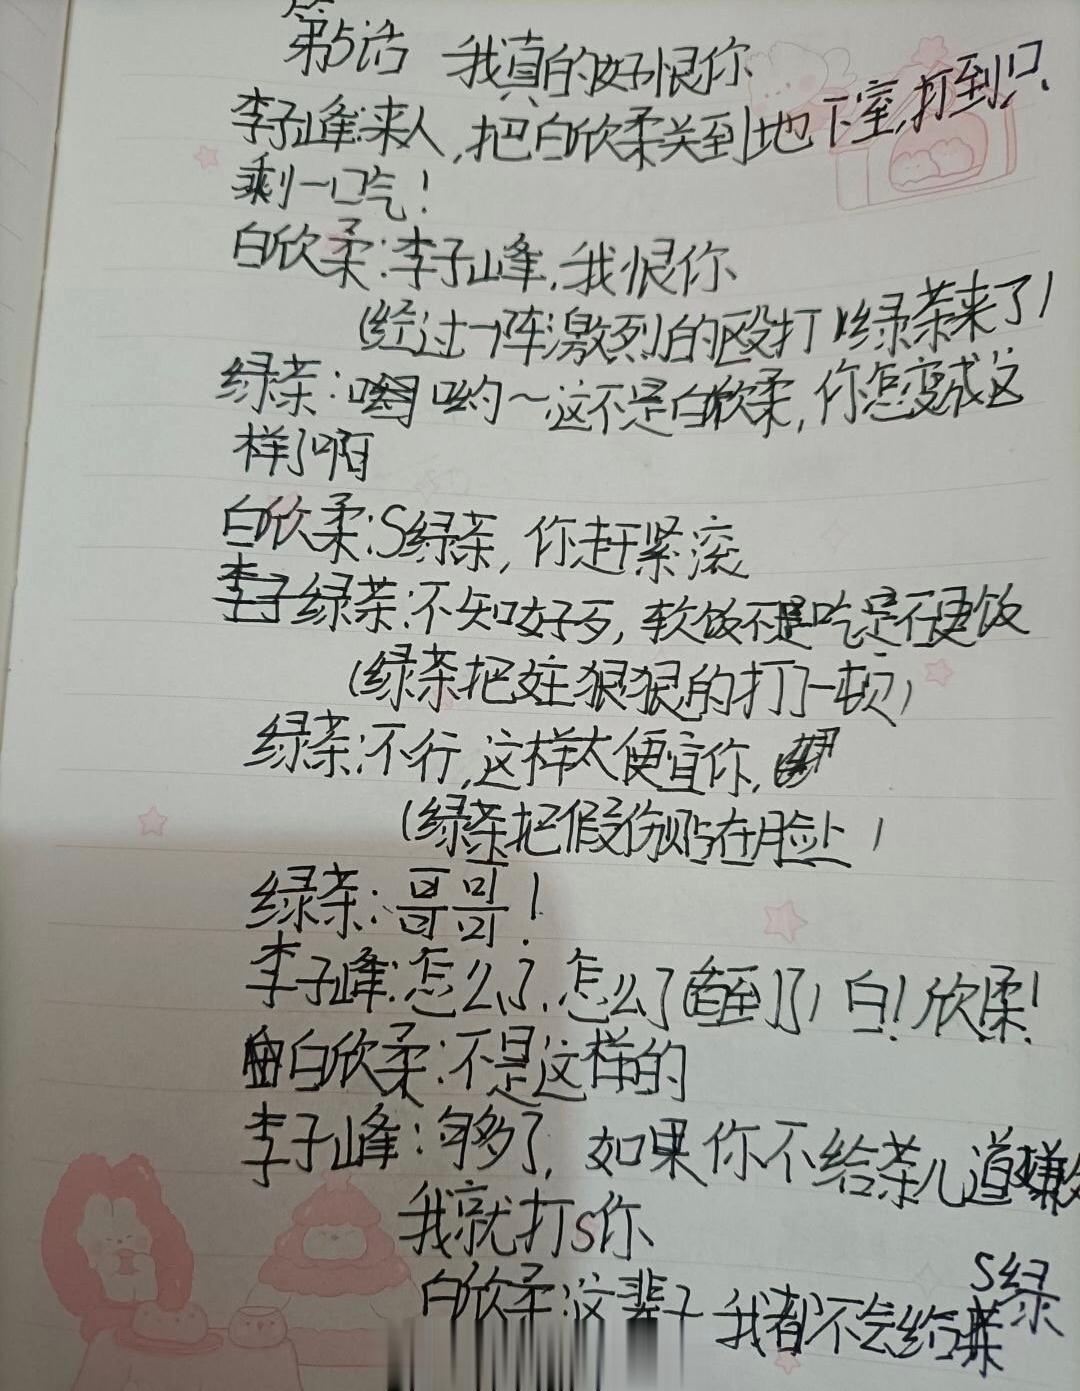 第5话 我真的好恨你
李子峰:来人,把白欣柔关到地下室,打到只
剩一口气!
白欣柔:李子峰,我恨你
(经过一阵激烈的殴打 绿茶来了)
绿茶:哟~这不是白欣柔,你怎变成这
样了啊
白欣柔:S绿茶,你赶紧滚
绿茶:不知好歹,软饭不是吃是不更饭
(绿茶把女主狠狠的打了一顿)
绿茶:不行,这样太便宜你,
(绿茶把假份贴在脸上)
绿茶:哥哥!
李子峰:怎么了,怎么了(看到了)白!欣柔!
白欣柔:不是这样的
李子峰:够了,如果你不给茶儿道嫌
我就打s你
白欣柔:这辈子我都不会给S绿茶